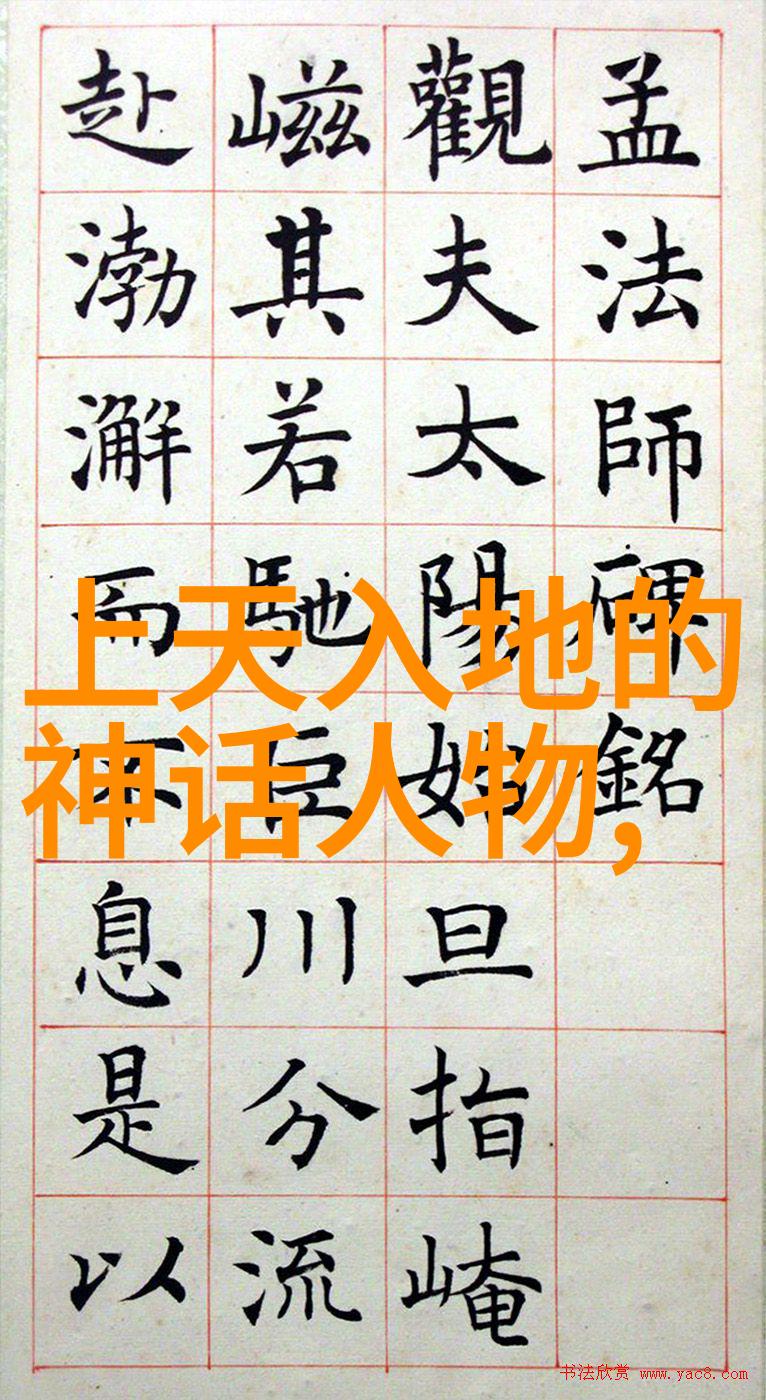 孟法師碑銘
觀夫太陽始旦指崦
嵫其若馳巨川分流
赴渤澥而不息是以
上天入地的
神话人物,
书法欣赏 www.yac8.com